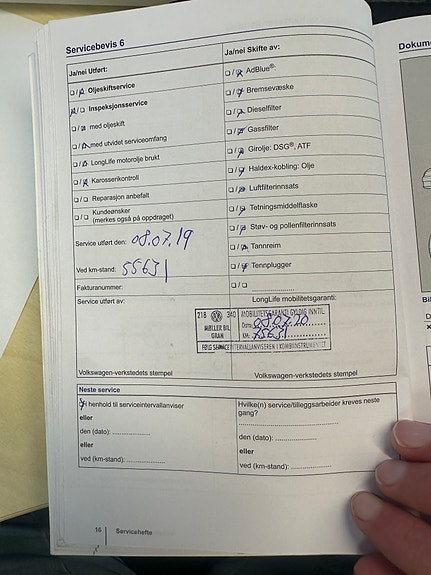 Servicebevis 6
Ja/nei Utført:
Oljeskiftservice
Inspeksjonsservice
med oljeskift
med utvidet serviceomfang
LongLife motorolje brukt
Karosserikontroll
Reparasjon anbefalt
Kundeønsker
(merkes også på oppdraget)
Service utført den: 08.07.19
Ved km-stand: 55631
Fakturanummer:
Service utført av:
Volkswagen-verkstedets stempel
Ja/nei Skifte av:
AdBlue®:
Bremsevæske
Dieselfilter
Gassfilter
Girolje: DSG®, ATF
Haldex-kobling: Olje
Luftfilterinnsats
Tetningsmiddelflaske
Støv- og pollenfilterinnsats
Tannreim
Tennplugger
LongLife mobilitetsgaranti:
218 VW 340
MØLLER BIL
GRAN
MOBILITETSGARANTI GYLDIG INNTIL:
Dato: 08.07.20
KM:
FØLG SERVICEINTERVALLANVISEREN I KOMBIINSTRUMENTET
Volkswagen-verkstedets stempel
Neste service
i henhold til serviceintervallanviser
eller
den (dato):
eller
ved (km-stand):
Hvilke(n) service/tilleggsarbeider kreves neste
gang?
den (dato):
eller
ved (km-stand):
16 Servicehefte
Dokume